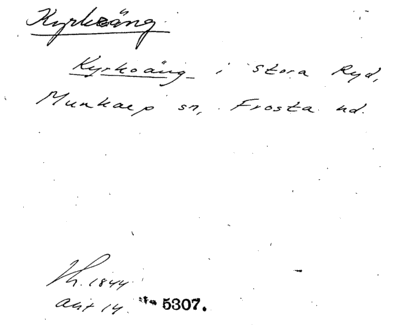 Kyrkoäng
Kyrkoäng i Stora Ryd,
Munkarp sn, Frosta hd.
Lh. 1844
akt 14 5307.